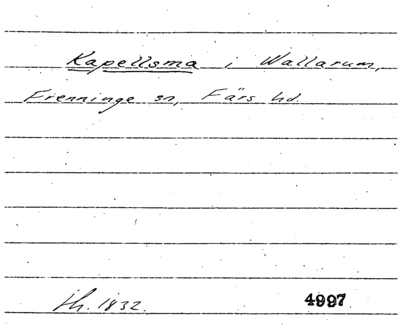 Kapellsma i Wallarum,
Frenninge sn, Färs hd.
th. 1832. 4997